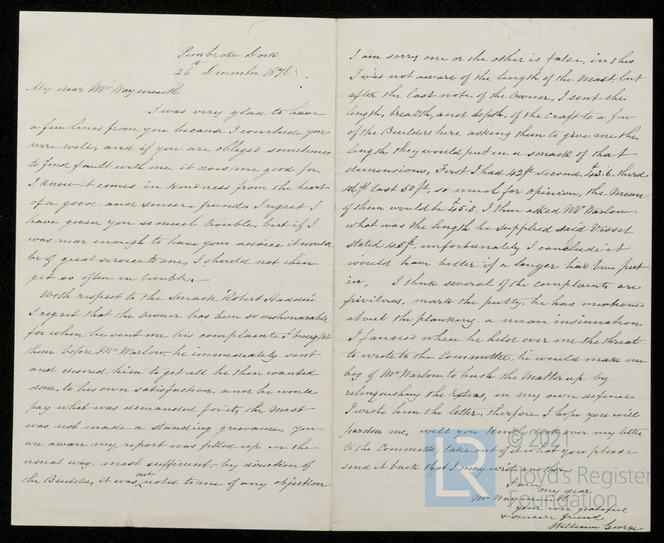 Pembroke Dock
26th December 1876
My dear Mr Waymouth
I was very glad to have
a few lines from you because I conclude you
were well, and if you are obliged sometimes
to find fault with me, it does me good for
I know it comes in kindness from the heart
of a good and sincere friend, I regret I
have given you so much trouble, but if I
was near enough to have your advice it would
be of great service to me, I should not then
get so often in trouble.
With respect to the Smack "Robert Hadden"
I regret that the owner has been so dishonorable
for when he sent me his complaints, I brought
them before Mr Warlow, he immediately sent
and desired him to get all he then wanted
done, to his own satisfaction, and he would
pay what was demanded for it, the Mast
was not made a standing grievance, you
are aware my report was filled up in the
usual way, mast sufficient, by direction of
the Builder, it was not noted to me of any objection
I am sorry one or the other is false, in this
I was not aware of the length of the Mast, but
after the last note of the Owner, I sent the
length, breadth, and depth, of the craft to a few
of the Builders here asking them to give me the
length they would put in a smack of that
dimensions, First I had 42ft second, 43.6. third
46ft last 50ft, so much for opinion, the Mean
of them would be 45.5, I then asked Mr Warlow
what was the length he supplied said Vessel
stated 45ft, unfortunately I conclude it
would have better if a longer had been put
in. I think several of the complaints are
frivilous, mark the putty, he has mentioned
about the planking, a mean insinuation
I fancied when he held over me the threat
to write to the Committee, he would make me
beg of Mr Warlow to hush the matter up by
relinquishing the Extras, in my own defence
I wrote him the letter, therefore I hope you will
pardon me, will you kindly look over my letter
to the Committee, take out of it what you please
send it back that I may write another
I am
my dear
Mr Waymouth
your ever grateful
& sincere friend
William George
© 2021
LR
Lloyd's Register
Foundation